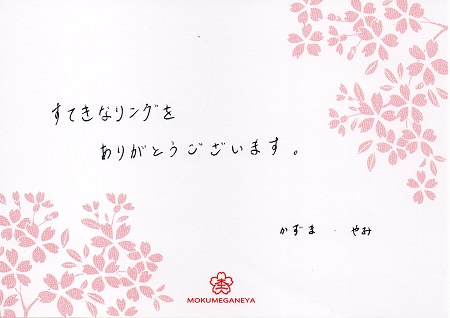 すてきなリングを
ありがとうございます。
かずま ・ やみ
MOKUMEGANEYA